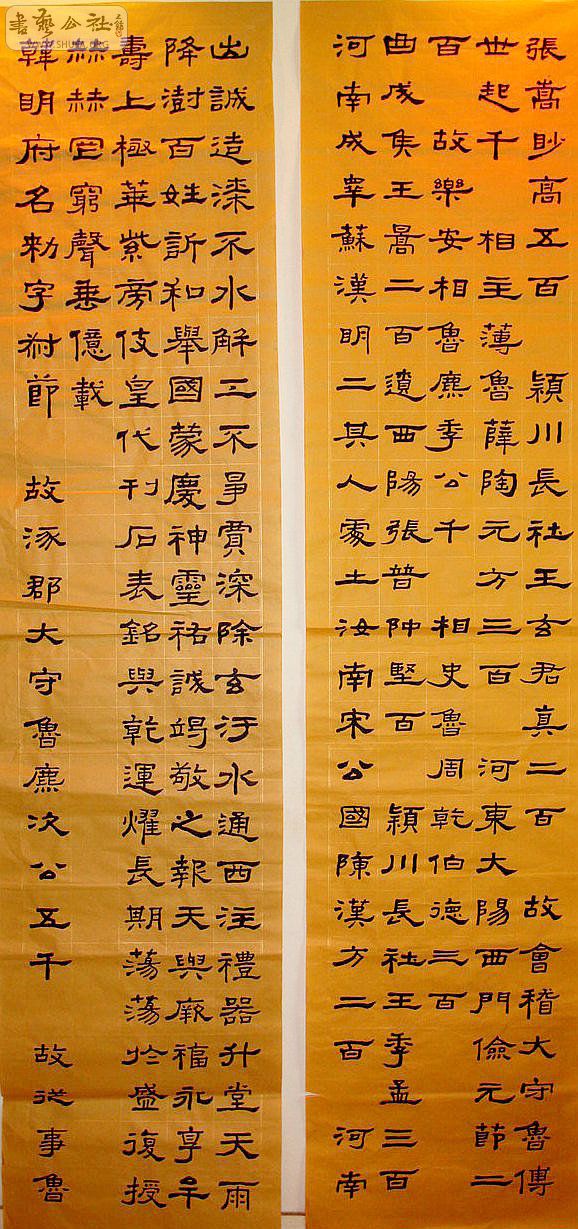 張嵩眇高五百 頴川長社王玄君真二百 故會稽大守魯傅
世起千 相主薄魯薛陶元方三百 河東大陽西門儉元節二
百 故樂安相魯麃季公千 相史魯周乾伯德三百
曲成侯王暠二百遺西陽張普仲堅百 頴川長社王季孟三百
河南成睪蘇漢明二其人處士汝南宋公國陳漢方二百 河南
出誠造漆不水解工不爭賈深除玄汙水通西注禮器升堂天雨
降澍百姓訢和舉國蒙慶神靈祐誠竭敬之報天與厥福永享牟
壽上極華紫旁伎皇代刊石表銘與乾運燿長期蕩蕩於盛復授
赫赫罔窮聲垂億載
韓明府名勑字叔節 故涿郡大守魯麃次公五千 故從事魯
書藝公社
WWW.SHUFA.ORG